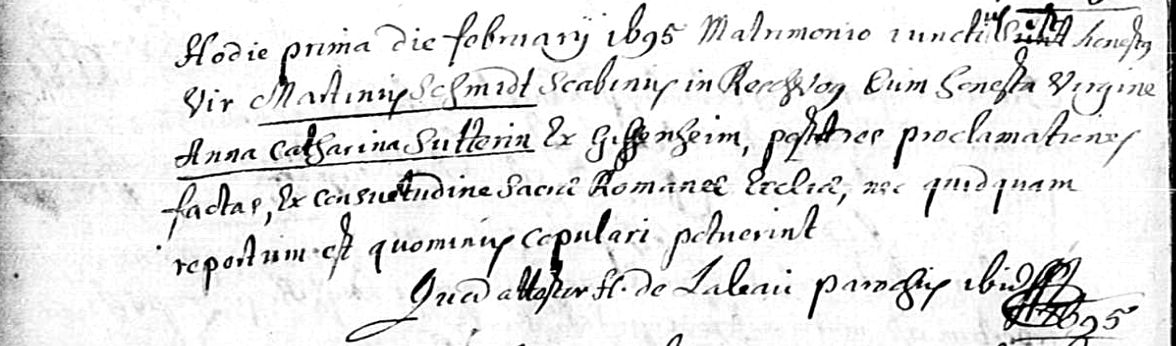 Hodie prima die februarÿ 1695 Matrimonio iuncti sunt honestus
Vir Martinus Schmidt Scabinus in Reschvog Cum honesta Virgine
Anna Catharina Sutterin Ex Gissenheim, post tres proclamationes
factas, Ex consuetudine Sacræ Romanæ Eccliæ, nec quidquam
repertum est quominus copulari potuerint
Quod attestor H. de Labaii parochus ibid
1695